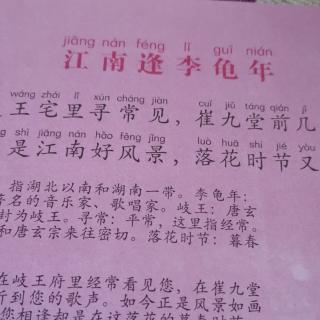 jiāng nán féng lǐ guī nián
江南逢李龟年
wáng zhái lǐ xún cháng jiàn cuī jiǔ táng qián jǐ
王宅里寻常见，崔九堂前几
shì jiāng nán hǎo fēng jǐng luò huā shí jié yòu
是江南好风景，落花时节又
指湖北以南和湖南一带。李龟年：
著名的音乐家、歌唱家。岐王：唐玄
封为岐王。寻常：平常，这里指经常。
和唐玄宗来往密切。落花时节：暮春
在岐王府里经常看见您，在崔九堂
听到您的歌声。如今正是风景如画
您相逢却是在这落花的暮春时节